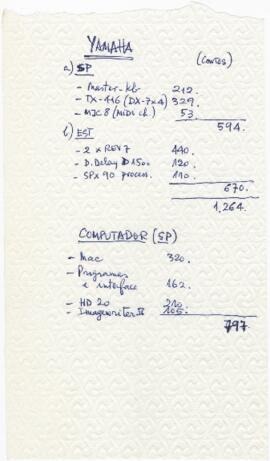 YAMAHA
(CONTOS)
a) SP
- Master-kbr 212.
- TX-416 (DX-7x4) 329.
- MJC8 (MiDi ch.) 53.
594.
b) EST
- 2 x REV 7 440.
- D. Delay D 1500 120.
- SPX 90 process. 110.
670.
1,264.
COMPUTADOR (SP)
- Mac 320.
- Programas
e interface 162.
- HD 20 210.
- Imagewriter II 105.
797.